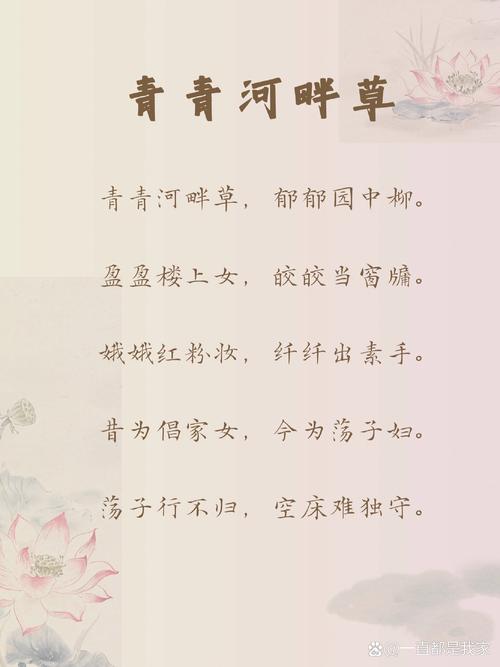 青青河畔草
青青河畔草，郁郁园中柳。
盈盈楼上女，皎皎当窗牖。
娥娥红粉妆，纤纤出素手。
昔为倡家女，今为荡子妇。
荡子行不归，空床难独守。
一直都是我家